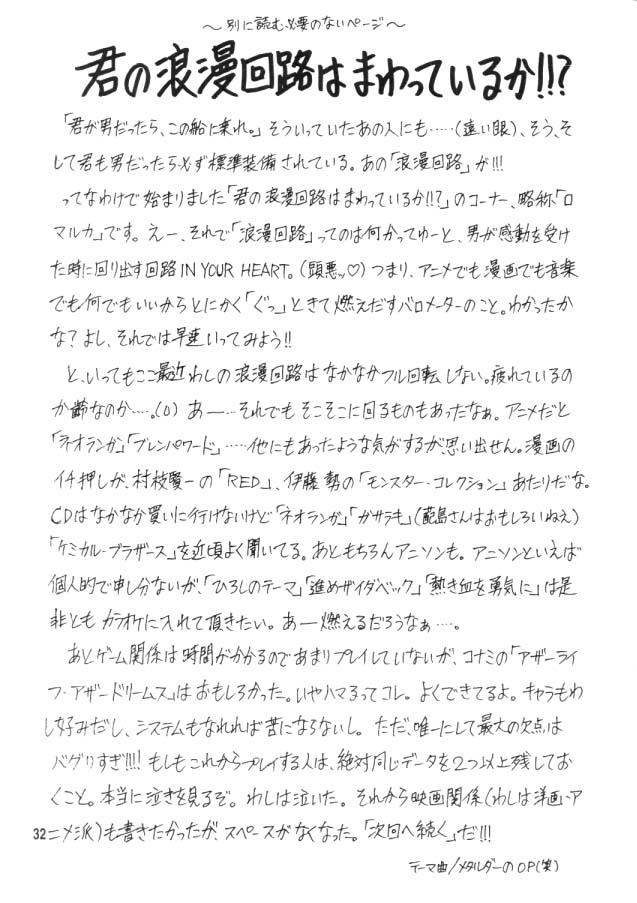 ～別に読む必要のないページ～
君の浪漫回路はまわっているか!!?
「君が男だったら、この船に乗れ。」そういっていたあの人にも‥‥‥(遠い眼)、そう、そ
して君も男だったら必ず標準装備されている。あの「浪漫回路」が!!!
ってなわけで始まりました「君の浪漫回路はまわっているか!!?」のコーナー、略称「ロ
マルカ」です。えー、それで「浪漫回路」ってのは何かってゆーと、男が感動を受け
た時に回り出す回路IN YOUR HEART。(頭悪ッ♡)つまり、アニメでも漫画でも音楽
でも何でもいいからとにかく「ぐっ」ときて燃えだすバロメーターのこと。わかったか
な?よし、それでは早速いってみよう!!
と、いってもここ最近わしの浪漫回路はなかなかフル回転しない。疲れているの
か齢なのか‥‥。(0) あー‥‥それでもそこそこに回るものもあったなぁ。アニメだと
「ネオランガ」「ブレンパワード」‥‥‥他にもあったような気がするが、思い出せん。漫画の
イチ押しが、村枝賢一の「RED」、伊藤勢の「モンスター・コレクション」あたりだな。
CDはなかなか買いに行けないけど「ネオランガ」「ガサラキ」(蓜島さんはおもしろいねえ)
「ケミカル・ブラザース」を近頃よく聞いてる。あともちろんアニソンも。アニソンといえば
個人的で申し分ないが、「ひろしのテーマ」「進めザイダベック」「熱き血を勇気に」は是
非ともカラオケに入れて頂きたい。あー燃えるだろうなぁ‥‥。
あとゲーム関係は時間がかかるのであまりプレイしていないが、コナミの「アザーライ
フ・アザードリームス」はおもしろかった。いやハマるってコレ。よくできてるよ。キャラもわ
し好みだし、システムもなれれば苦にならないし。ただ、唯一にして最大の欠点は
バグりすぎ!!!!もしもこれからプレイする人は、絶対同じデータを2つ以上残してお
くこと。本当に泣きを見るぞ。わしは泣いた。それから映画関係(わしは洋画・ア
ニメ派)も書きたかったが、スペースがなくなった。「次回へ続く」だ!!!
32
テーマ曲/メタルダーのOP(笑)